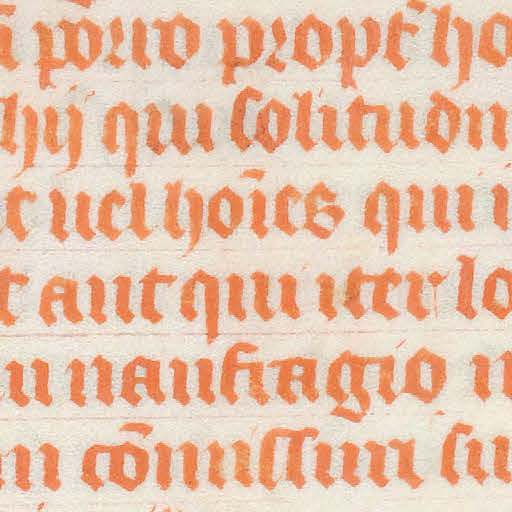 porro propt̄ ho
hij qui solitudin
uel hoīes qui
aut qui iter lo
naufragio
cōmissum su